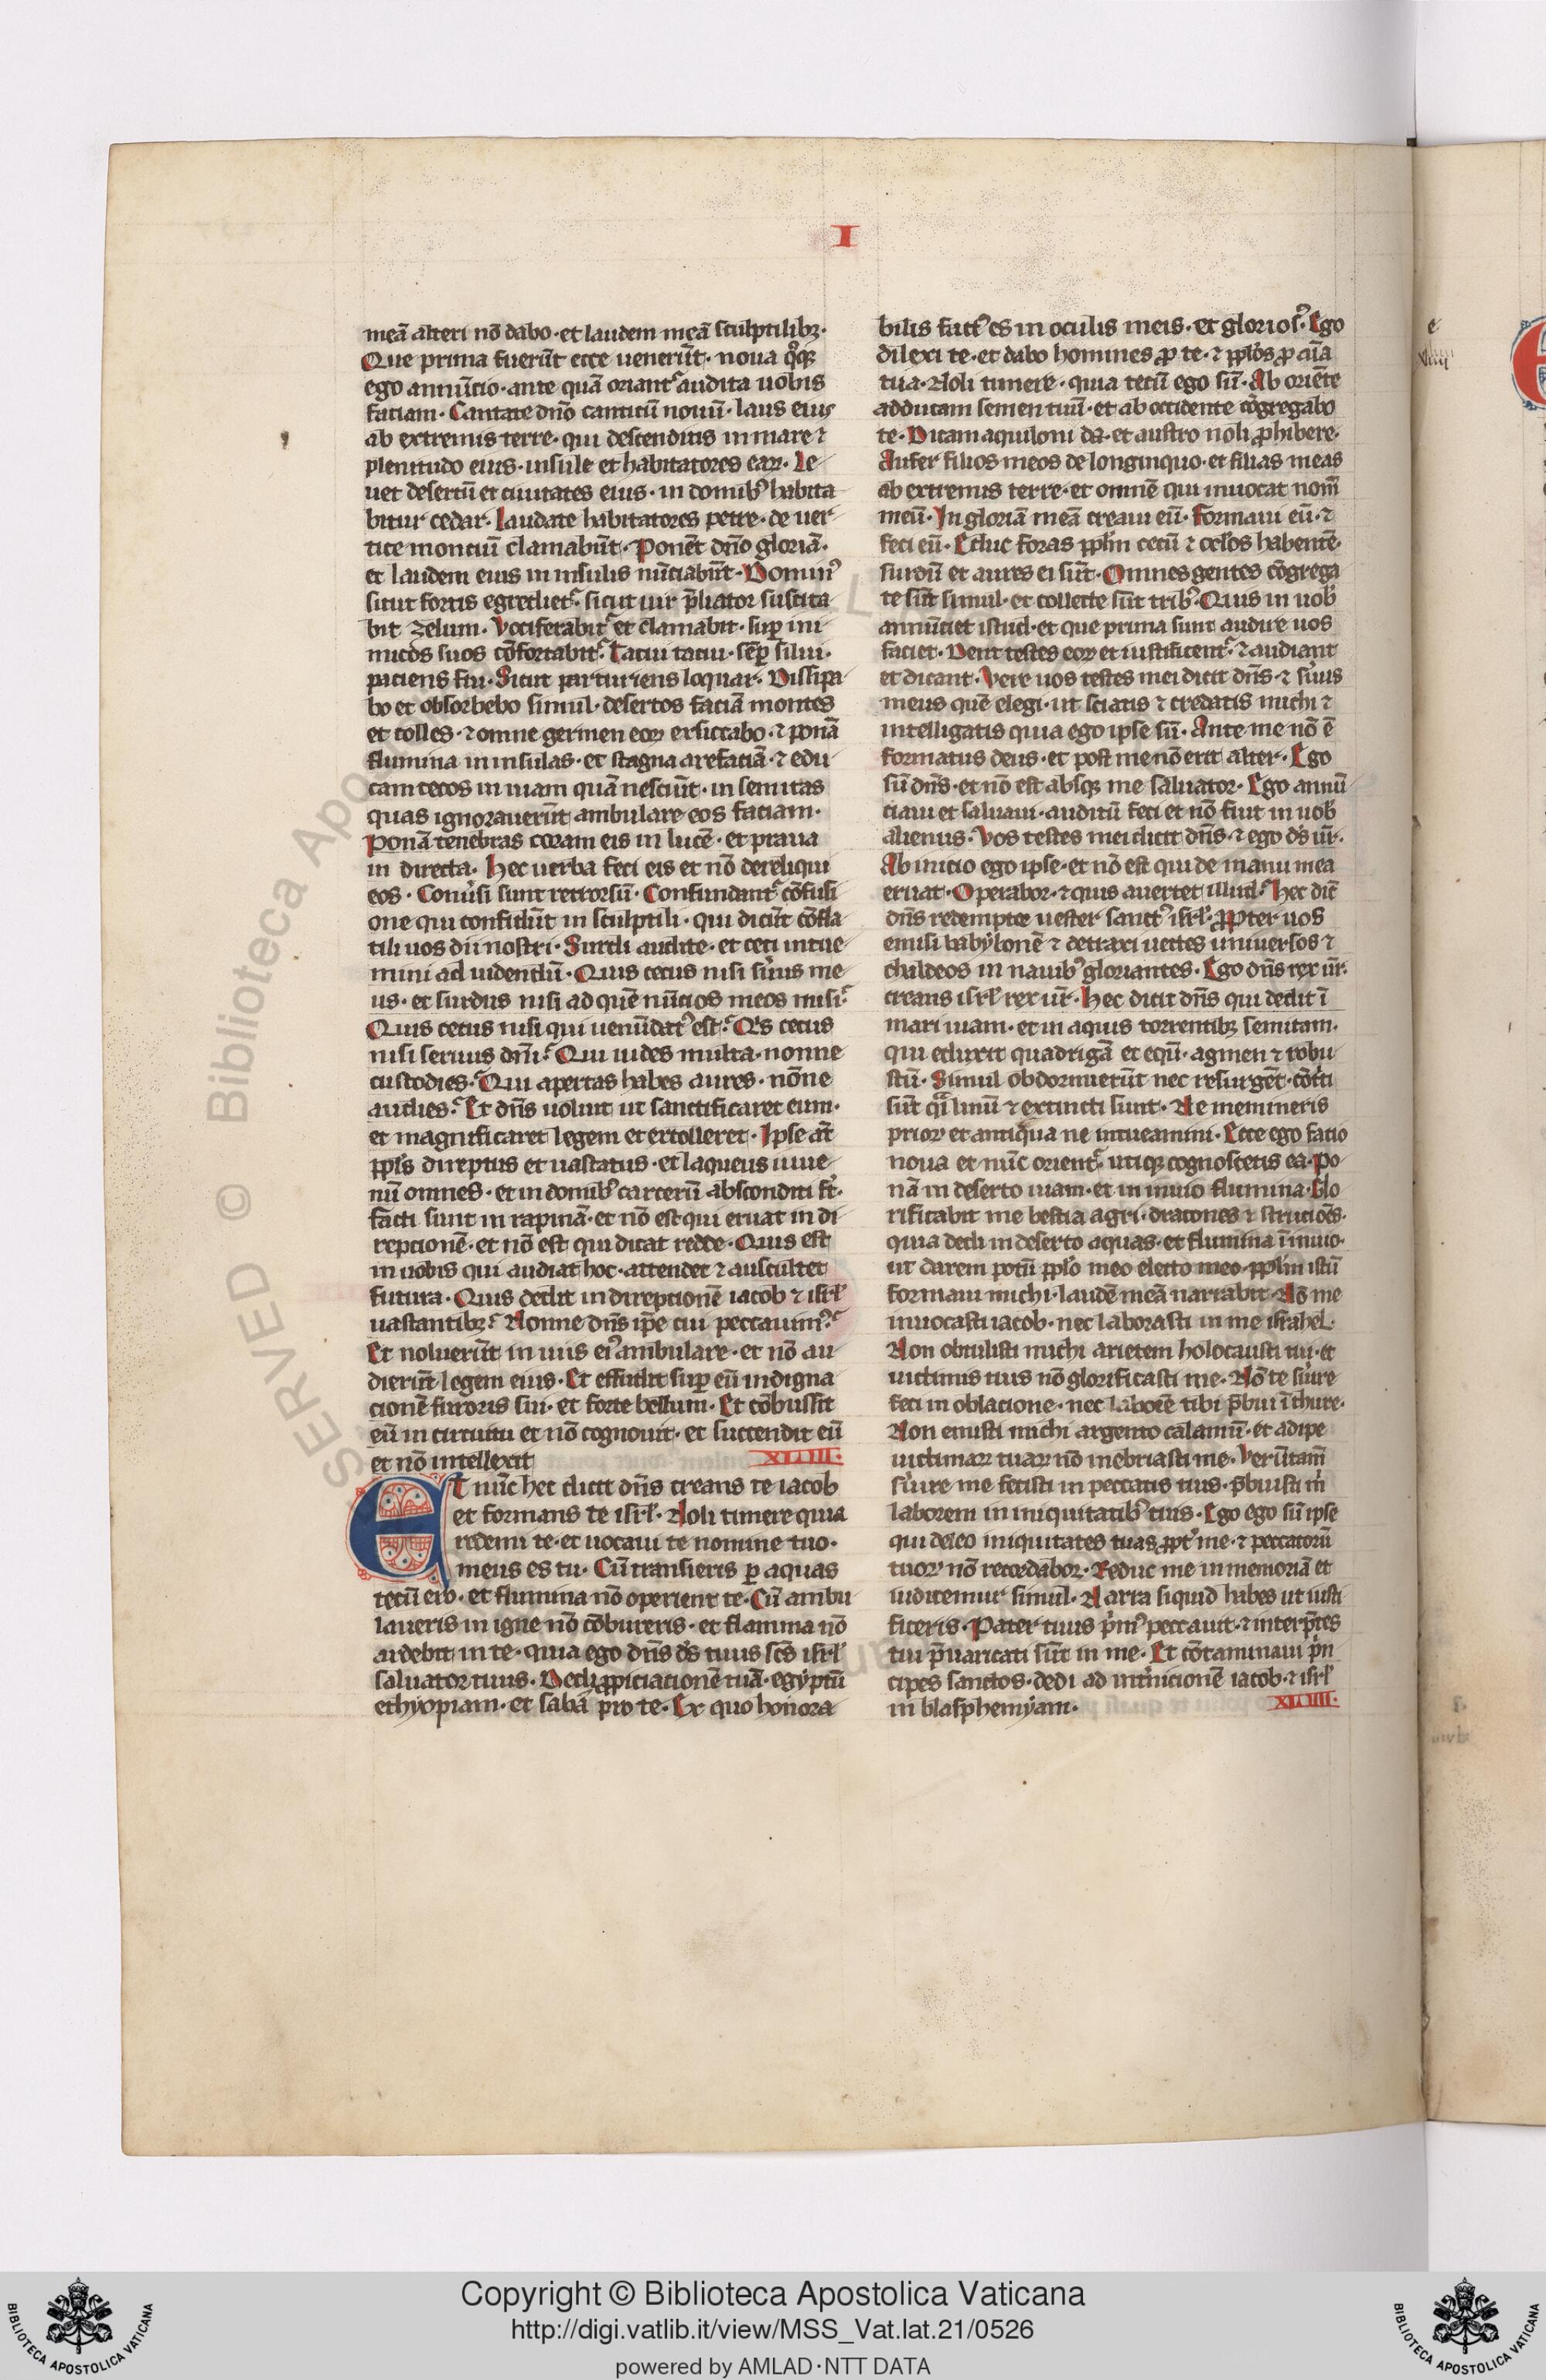 I
meā alteri nō dabo· et laudem meā sculptilibꝫ·
Que prima fuerūt ecce uenerūt· noua q̊qꝫ
ego annūcio· ante quā oriant᷑ audita uobis
faciam· Cantate dn̄o canticū nouū· laus eius
ab extremis terre· qui descenditis in mare ⁊
plenitudo eius· insule et habitatores eaꝝ· Le
uet desertū et ciuitates eius· in domibꝰ habita
bitur cedar· Laudate habitatores petre· de uer
tice montiū clamabūt· Ponēt dn̄o gloriā·
et laudem eius in insulis nūciabūt· Dominꝰ
sicut fortis egrediet᷑· sicut uir p̄liator suscita
bit zelum· Vociferabit᷑ et clamabit· suꝑ ini
micos suos cōfortabit᷑· Tacui tacui· sēꝑ silui·
paciens fui· Sicut parturiens loquar· Dissipa
bo et obsorbebo simul· desertos faciā montes
et colles· ⁊ omne germen eoꝝ exsiccabo· ⁊ ponā
flumina in insulas· et stagna arefaciā· ⁊ edu
cam cecos in uiam quā nesciūt· in semitas
quas ignorauerūt ambulare eos faciam·
Ponā tenebras coram eis in lucē· et praua
in directa· Hec uerba feci eis et nō dereliqui
eos· Conu̓si sunt retrorsū· Confundant᷑ cōfusi
one qui confidūt in sculptili· qui dicūt cōfla
tili uos dii nostri· Surdi audite· et ceci intue
mini ad uidendū· Quis cecus nisi su̓us me
us· et surdus nisi ad quē nūcios meos misi·
Quis cecus nisi qui uenūdatꝰ est· Qⁱs cecus
nisi seruus dn̄i· Qui uides multa· nonne
custodies· Qui apertas habes aures· nōne
audies· Et dn̄s uoluit ut sanctificaret eum·
et magnificaret legem et extolleret· Ipse aūt
ppl̄s direptus et uastatus· et laqueus iuue
nū omnes· et in domibꝰ carcerū absconditi st̄·
facti sunt in rapinā· et nō est qui eruat in di
reptionē· et nō est qui dicat redde· Quis est
in uobis qui audiat hoc· attendet ⁊ auscultet
futura· Quis dedit in direptionē iacob ⁊ isrl̄
uastantibꝫ· Nonne dn̄s ip̄e cui peccauimꝰ·
Et noluerūt in uiis eiꝰ ambulare· et nō au
dierūt legem eius· Et effudit suꝑ eū indigna
cionē furoris sui· et forte bellum· Et cōbussit
eū in circuitu et nō cognouit· et succendit eū
et nō intellexit XLIII·
ET nūc hec dicit dn̄s creans te iacob
et formans te isrl̄· Noli timere quia
redemi te· et uocaui te nomine tuo·
meus es tu· Cū transieris ꝑ aquas
tecū ero· et flumina nō operient te· Cū ambu
laueris in igne nō cōbureris· et flamma nō
ardebit in te· quia ego dn̄s ds̄ tuus scs̄ isrl̄
saluator tuus· Dedi ꝓpiciacionē tuā· egyptū
ethyopiam· et saba pro te· Ex quo honora
bilis factꝰ es in oculis meis· et gloriosꝰ· Ego
dilexi te· et dabo homines ꝓ te· ⁊ ppl̄os ꝓ aīa
tua· Noli timere· quia tecū ego sū· Ab oriēte
adducam semen tuū· et ab occidente cōgregabo
te· Dicam aquiloni da· et austro noli ꝓhibere·
Aufer filios meos de longinquo· et filias meas
ab extremis terre· et omnē qui inuocat nom̄
meū· In gloriā meā creaui eū· formaui eū· ⁊
feci eū· Educ foras ppl̄m cecū ⁊ oclos habentē·
surdū et aures ei sūt· Omnes gentes cōgrega
te sūt simul· et collecte sūt tribꝰ· Quis in uob̄
annūciet istud· et que prima sunt audire uos
faciet· Dent testes eoꝝ et iustificent᷑· ⁊ audiant
et dicant· Vere uos testes mei dicit dn̄s· ⁊ su̓us
meus quē elegi· ut sciatis ⁊ credatis michi ⁊
intelligatis quia ego ipse sū· Ante me nō ē
formatus deus· et post me nō erit alter· Ego
sū dn̄s· et nō est absqꝫ me saluator· Ego annū
ciaui et saluaui· auditū feci et nō fuit in uob̄
alienus· Vos testes mei dicit dn̄s· ⁊ ego ds̄ ur̄·
Ab inicio ego ipse· et nō est qui de manu mea
eruat· Operabor· ⁊ quis auertet illud· Hec dic̄
dn̄s redemptor uester sanctꝰ isrl̄· ꝓpter uos
emisi babylonē ⁊ detraxi uectes uniuersos ⁊
chaldeos in nauibꝰ gloriantes· Ego dn̄s rex ur̄·
creans isrl̄ rex ur̄· Hec dicit dn̄s qui dedit ī
mari uiam· et in aquis torrentibꝫ semitam·
qui eduxit quadrigā et equū· agmen ⁊ robu
stū· Simul obdormierūt nec resurgēt· cōt̓ti
sūt q̄i linū ⁊ extincti sunt· Ne memineris
prioꝝ et antiqua ne intueamini· Ecce ego facio
noua et nūc orient᷑· utiqꝫ cognoscetis ea· Po
nā in deserto uiam· et in inuio flumina· Glo
rificabit me bestia agri· dracones ⁊ strucioēs·
quia dedi in deserto aquas· et flumina ī inuio·
ut darem potū ppl̄o meo electo meo· ppl̄m istū
formaui michi· laudē meā narrabit· Nō me
inuocasti iacob· nec laborasti in me israhel·
Non obtulisti michi arietem holocausti tui· et
uictimis tuis nō glorificasti me· Nō te su̓ire
feci in oblacione· nec laborē tibi p̄bui ī thure·
Non emisti michi argento calamū· et adipe
uictimaꝝ tuaꝝ nō inebriasti me· Verūtam̄
su̓ire me fecisti in peccatis tuis· p̄buisti m̓
laborem in iniquitatibꝰ tuis· Ego ego sū ipse
qui deleo iniquitates tuas ꝓptꝰ me· ⁊ peccatorū
tuoꝝ nō recordabor· Reduc me in memoriā et
iudicemur simul· Narra siquid habes ut iusti
ficeris· Pater tuus p̓mꝰ peccauit· ⁊ interp̄tes
tui p̄uaricati sūt in me· Et cōtaminaui p̓n
cipes sanctos· dedi ad int̓nicionē iacob· ⁊ isrl̄
in blasphemyam· XLIIII·
© Biblioteca Apo
SERVED
Copyright © Biblioteca Apostolica Vaticana
http://digi.vatlib.it/view/MSS_Vat.lat.21/0526
powered by AMLAD·NTT DATA
BIBLIOTECA APOSTOLICA VATICANA
BIBLIOTECA APOSTOLICA VATICANA